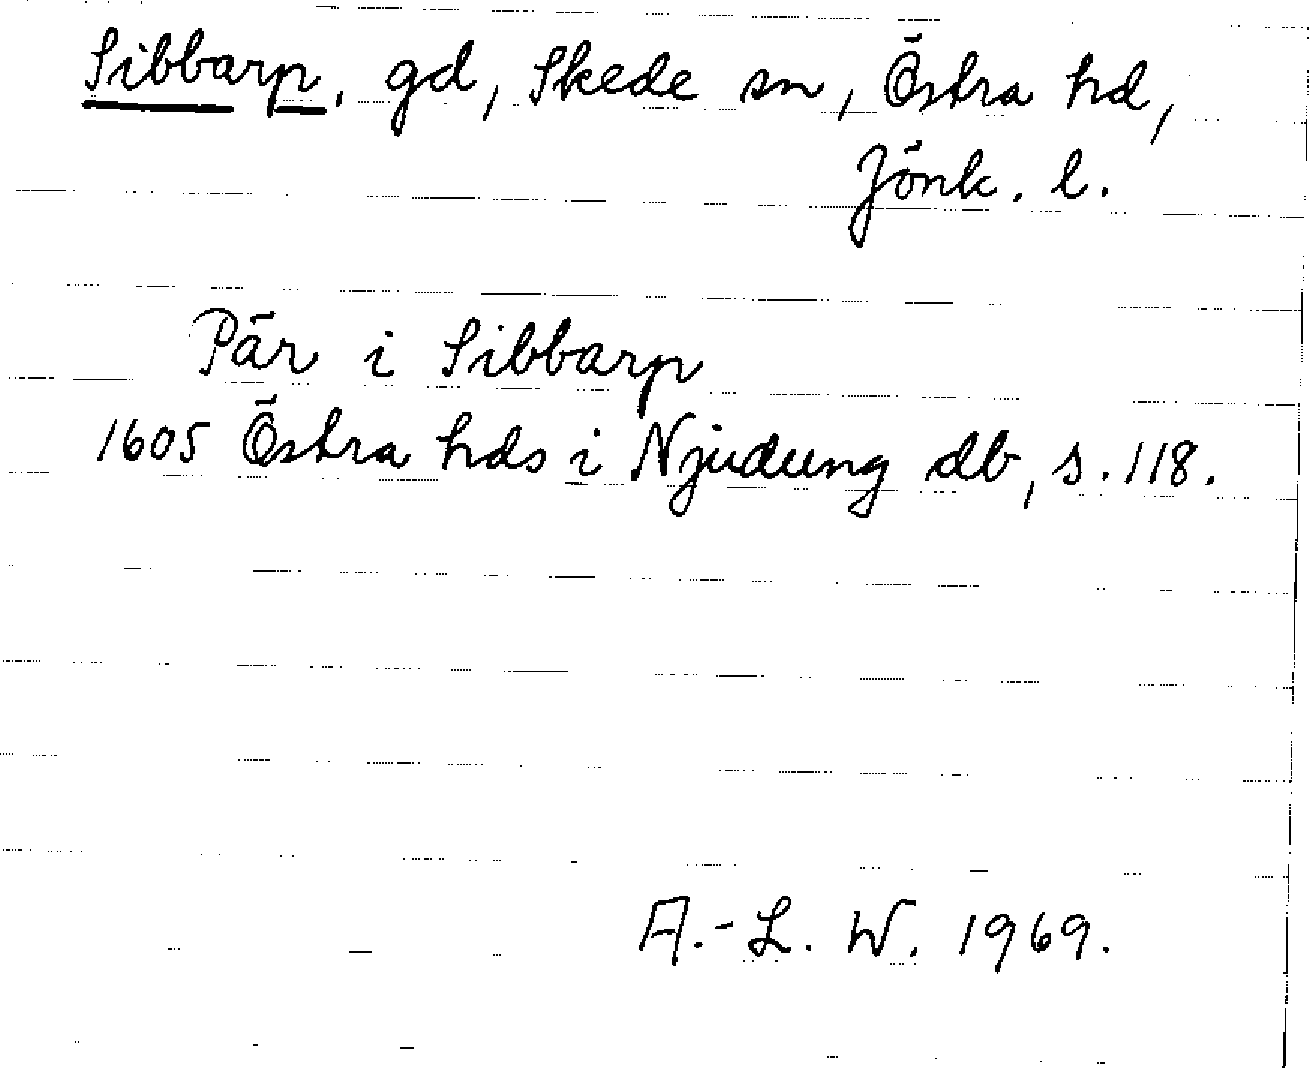 Sibbarp, gd, Skede sn, Östra hd,
Jönk. l.
Pär i Sibbarp
1605 Östra hds i Njudung db, s. 118.
A.-L. W. 1969.